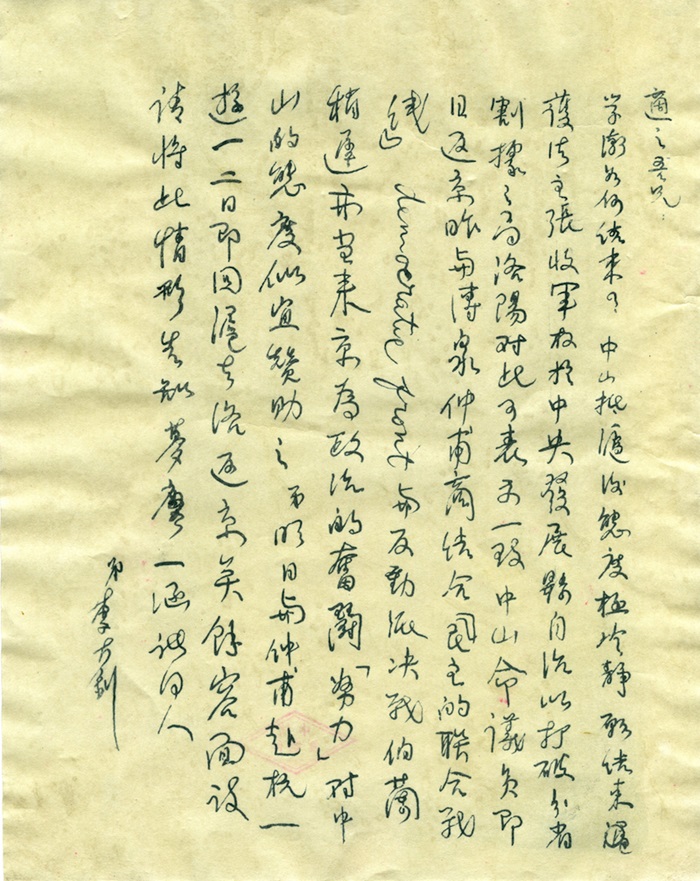 適之吾兄：
学潮如何结束？中山抵滬后態度極冷靜願结束護
護法主張收軍权於中央發展縣自治以打破分省
割據之局洛陽对此可表示一致中山命議員即
日返京昨与溥泉仲甫商结合民主的聯合战
线」democratic front与反動派决战伯蘭
稍遲亦当来京為政治的奮鬪「努力」对中
山的態度似宜赞助之弟明日与仲甫赴杭一
游一二日即回滬去洛返京矣餘容面談
請将此情形告知夢麐一涵諸同人
弟李大釗